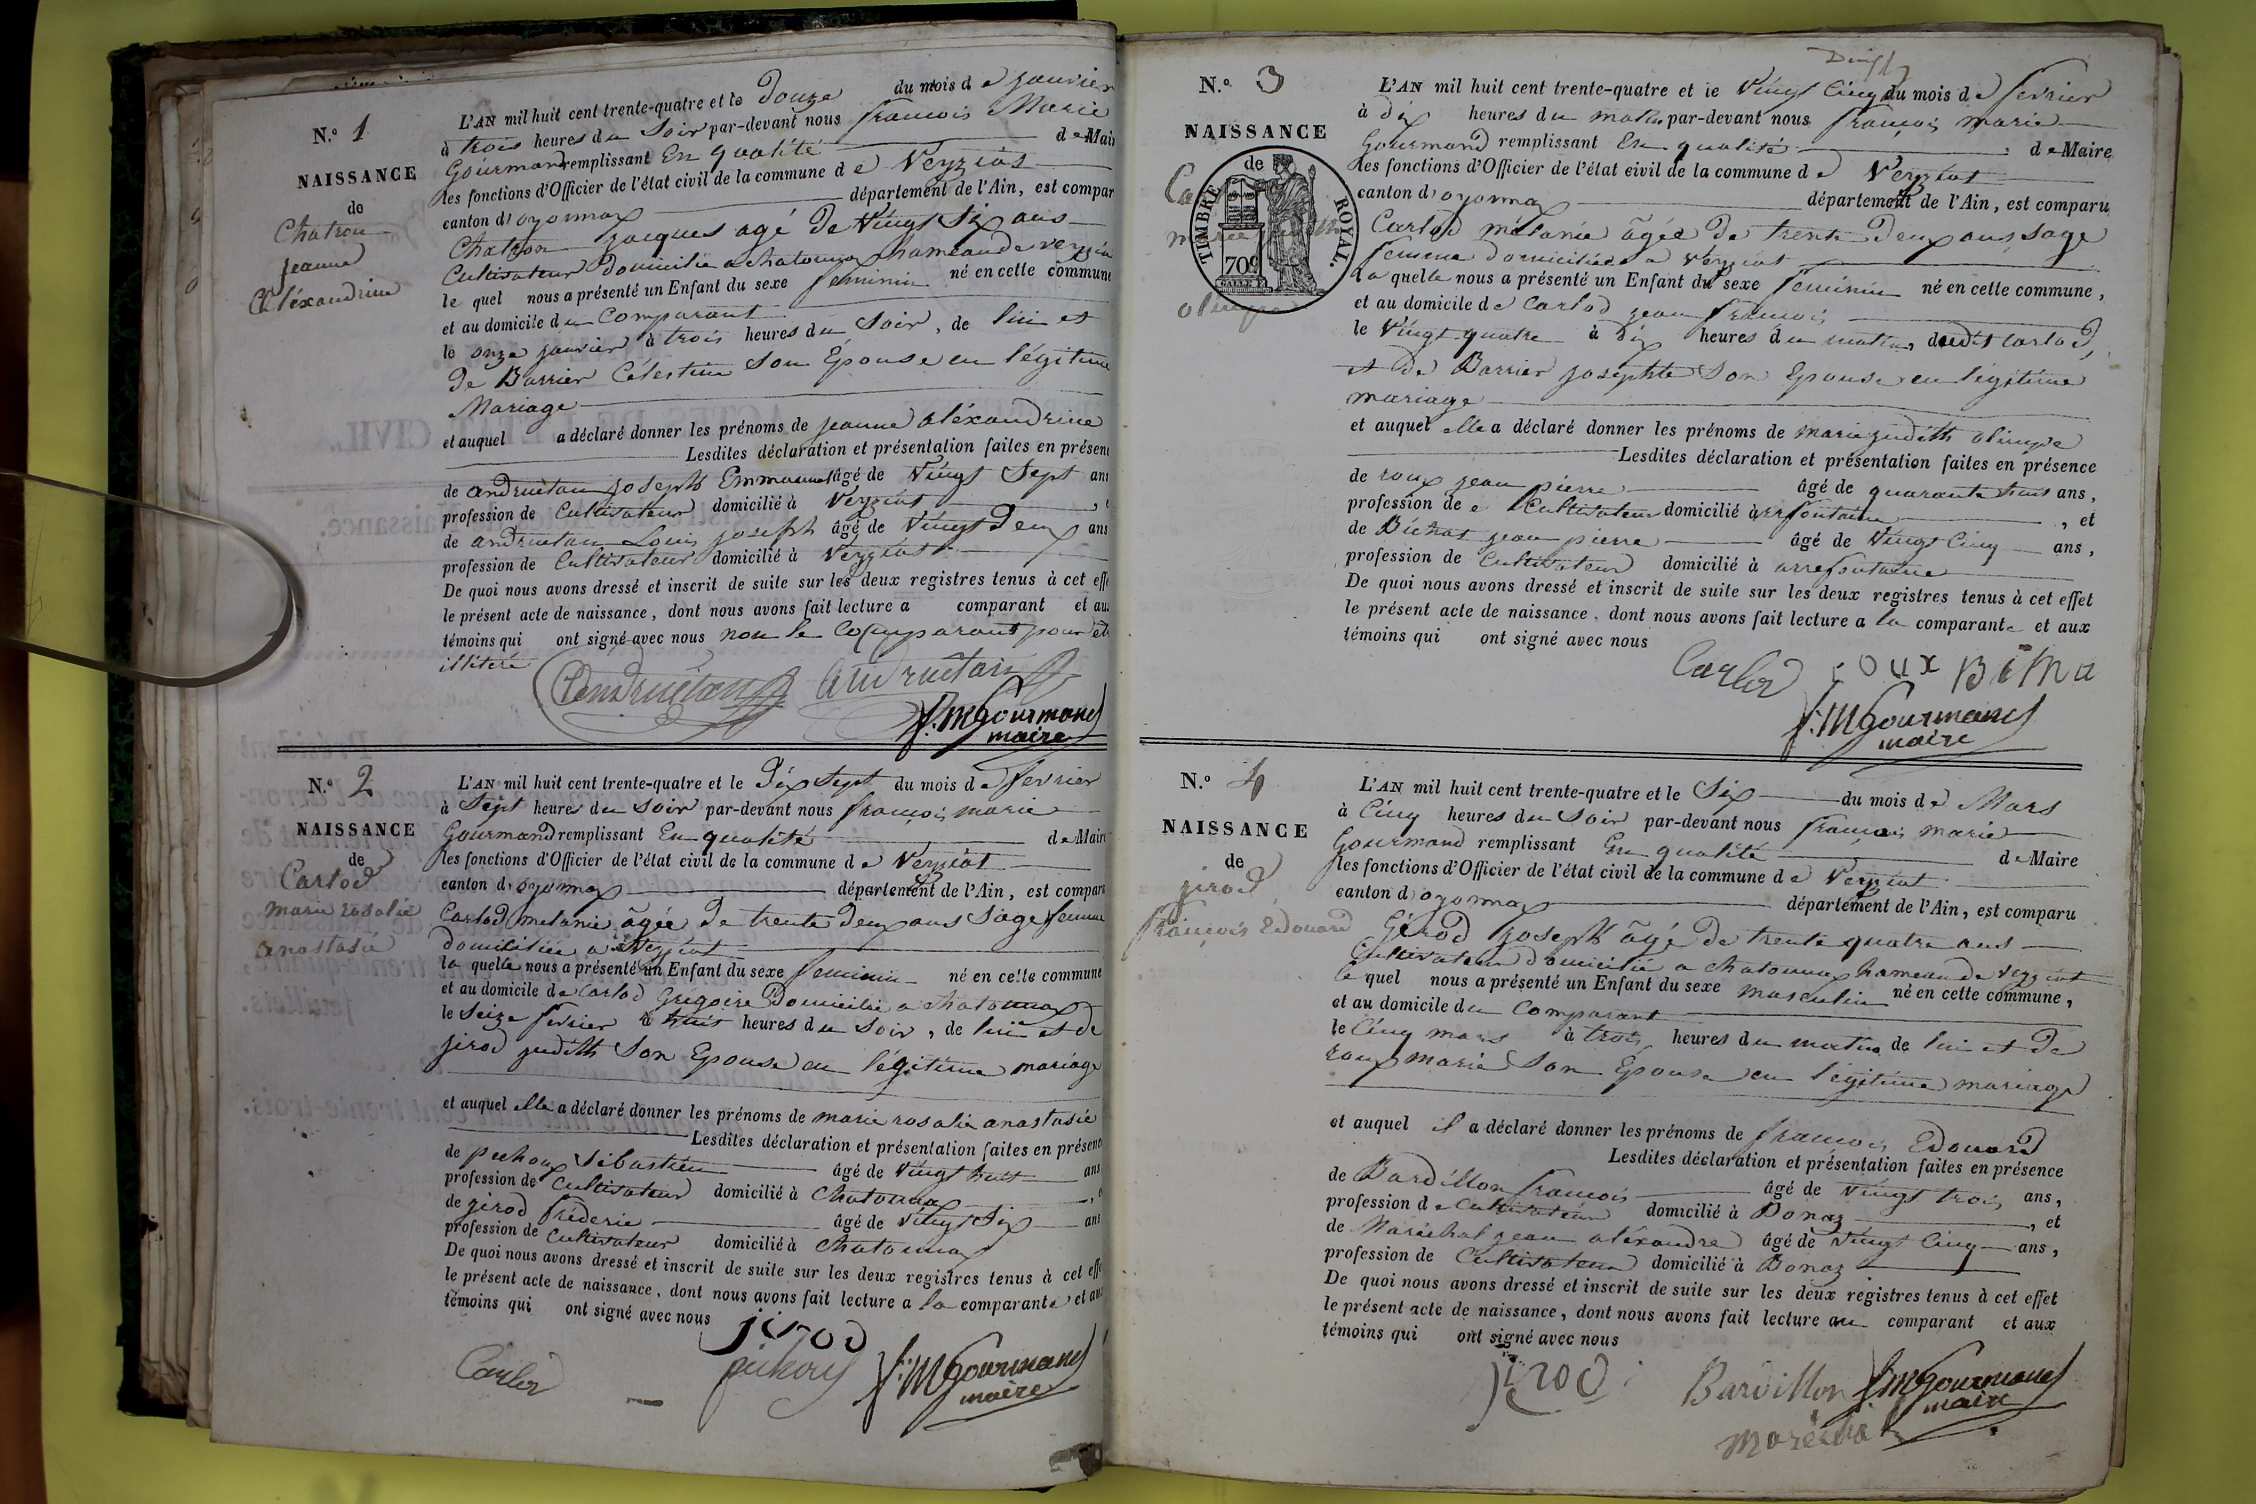 N.º 1
NAISSANCE
de
Chatron
jeanne
Aléxandrine
L'AN mil huit cent trente-quatre et le Douze du mois de janvier
à trois heures du Soir par-devant nous francois Marie
Gourmand remplissant En qualité de Mair
les fonctions d'Officier de l'état civil de la commune de Veyziat
canton d'oyonnax département de l'Ain, est compar
Chatron jacques agé de Vingt Six ans
Cultivateur Domicilié a chatonnax hameau de veyziat
le quel nous a présenté un Enfant du sexe feminin né en cette commune
et au domicile du Comparant
le onze janvier à trois heures du Soir, de lui et
de Barrier Célestine Son Épouse en légitime
Mariage
et auquel a déclaré donner les prénoms de jeanne aléxandrine
Lesdites déclaration et présentation faites en présen
de andruétan joseph Emmanuel âgé de Vingt Sept ans
profession de Cultivateur domicilié à Veyziat
de andruétan Louis joseph âgé de Vingt Deux ans
profession de Cultivateur domicilié à Veyziat
De quoi nous avons dressé et inscrit de suite sur les deux registres tenus à cet effe
le présent acte de naissance, dont nous avons fait lecture a comparant et aux
témoins qui ont signé avec nous non le Comparant pour etr
illiteré
Andruétan andruétan
f. M Gourmand
maire
N.º 2
NAISSANCE
de
Carlod
marie rosalie
anastasie
L'AN mil huit cent trente-quatre et le Dix Sept du mois de fevrier
à Sept heures du Soir par-devant nous francois marie
Gourmand remplissant En qualité de Maire
les fonctions d'Officier de l'état civil de la commune de Veyziat
canton d'oyonnax département de l'Ain, est comparu
Carlod melanie âgée de trente deux ans Sage femme
domiciliée a Veyziat
la quelle nous a présenté un Enfant du sexe feminin né en cette commune
et au domicile de Carlod Grégoire Domicilié a chatonnax
le Seize fevrier à huit heures du Soir, de lui et de
jirod judith Son Epouse en légitime mariage
et auquel elle a déclaré donner les prénoms de marie rosalie anastasie
Lesdites déclaration et présentation faites en présenc
de pichoux Sébastien âgé de Vingt huit ans
profession de Cultivateur domicilié à Chatonnax
de jirod fréderic âgé de Vingt Six ans
profession de Cultivateur domicilié à Chatonnax
De quoi nous avons dressé et inscrit de suite sur les deux registres tenus à cet effe
le présent acte de naissance, dont nous avons fait lecture a la comparante et aux
témoins qui ont signé avec nous
jirod
Carlod pichoux f. M Gourmand
maire
N.º 3
NAISSANCE
de
TIMBRE ROYAL.
70c
olimpe
L'AN mil huit cent trente-quatre et le Vingt Cinq du mois de fevrier
à dix heures du matin par-devant nous françois marie
Gourmand remplissant En qualité de Maire
les fonctions d'Officier de l'état civil de la commune de Veyziat
canton d'oyonnax département de l'Ain, est comparu
Carlod mélanie âgée de trente Deux ans, sage
femme domiciliée a Veyziat
la quelle nous a présenté un Enfant du sexe feminin né en cette commune,
et au domicile de Carlod jean françois
le Vingt quatre à dix heures du matin, dudit Carlod,
et de Barrier josephte Son Epouse en légitime
mariage
et auquel elle a déclaré donner les prénoms de marie judith olimpe
Lesdites déclaration et présentation faites en présence
de roux jean pierre âgé de quarante trois ans,
profession de Cultivateur domicilié à arfontaine, et
de Bichat jean pierre âgé de Vingt Cinq ans,
profession de Cultivateur domicilié à arrefontaine
De quoi nous avons dressé et inscrit de suite sur les deux registres tenus à cet effet
le présent acte de naissance, dont nous avons fait lecture a la comparante et aux
témoins qui ont signé avec nous
Carlod roux
f. M Gourmand
maire
N.º 4
NAISSANCE
de
jirod
françois Edouard
L'AN mil huit cent trente-quatre et le Six du mois de Mars
à Cinq heures du Soir par-devant nous françois marie
Gourmand remplissant En qualité de Maire
les fonctions d'Officier de l'état civil de la commune de Veyziat
canton d'oyonnax département de l'Ain, est comparu
Gérod joseph âgé de trente quatre ans
Cultivateur domicilié a chatonnax hameau de veyziat
le quel nous a présenté un Enfant du sexe masculin né en cette commune,
et au domicile du Comparant
le Cinq mars à trois heures du matin, de lui et de
roux marie Son Epouse en légitime mariage
et auquel il a déclaré donner les prénoms de francois Edouard
Lesdites déclaration et présentation faites en présence
de Bardillon francois âgé de Vingt trois ans,
profession de Cultivateur domicilié à Bonaz, et
de Maréchal jean aléxandre âgé de Vingt Cinq ans,
profession de Cultivateur domicilié à Bonaz
De quoi nous avons dressé et inscrit de suite sur les deux registres tenus à cet effet
le présent acte de naissance, dont nous avons fait lecture au comparant et aux
témoins qui ont signé avec nous
jirod Bardillon f. M Gourmand
maire
maréchal